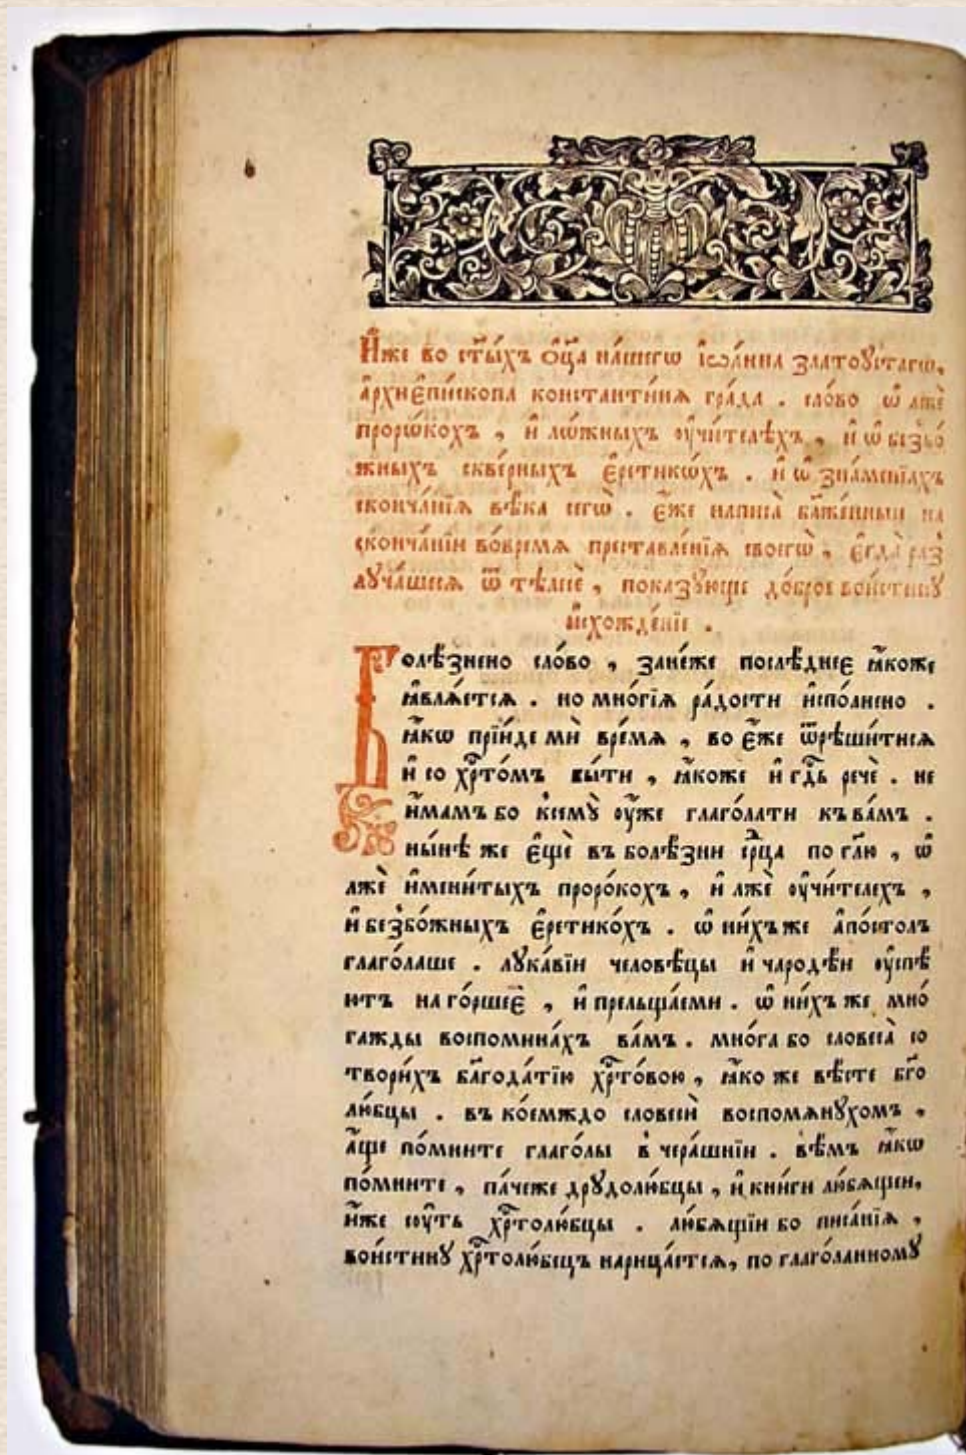 И҆́же во ст҃ы́хъ ѻ҆ц҃а на́шегѡ і҆ѡа́нна златоꙋ́стагѡ,
а҆рхїе҆пи́скопа константи́нѧ гра́да . сло́во ѡ҆ лжѐ
проро́кѡхъ , и҆ ло́жныхъ ᲂу҆чи́телѣхъ , и҆ ѡ҆ безбо́
жныхъ скве́рныхъ є҆ретикѡ́хъ . и҆ ѡ҆ зна́менїихъ
сконча́нїѧ вѣ́ка сегѡ̀ . є҆́же написа̀ бл҃же́нныи на
сконча́нїи во́времѧ преставле́нїѧ своегѡ̀ , є҆гда̀ раз̾
лꙋча́шесѧ ѿ тѣ́лесѐ , показꙋ́юще до́брое вои́стиннꙋ
и҆схожде́нїе .
Болѣ́знено сло́во , зане́же послѣ́днеє ꙗ҆́коже
ꙗ҆влѧ́етсѧ . но мно́гїѧ ра́дости и҆спо́лнено .
ꙗ҆́кѡ прїи́де мѝ вре́мѧ , во є҆́же ѿрѣши́тисѧ
и҆ со хрⷭ҇то́мъ бы́ти , ꙗ҆́коже и҆ гдⷭ҇ь речѐ . не
и҆́мамъ бо ксемꙋ̀ ᲂу҆́же глаго́лати къ ва́мъ .
ны́нѣ же є҆щѐ въ болѣ́зни срⷣца по гл҃ю , ѡ҆
лжѐ и҆мени́тыхъ проро́кохъ , и҆ лжѐ ᲂу҆чи́телехъ ,
и҆ безбо́жныхъ є҆ретико́хъ . ѡ҆ ни́хъ же а҆по́столъ
глаго́лаше . лꙋка́вїи человѣ́цы и҆ чародѣ́и ᲂу҆спѣ́
ютъ на го́ршеє , и҆ прельща́еми . ѡ҆ ни́хъ же мно́
гажды воспомина́хъ ва́мъ . мно́га бо словеса̀ со
твори́хъ бл҃года́тїю хрⷭ҇то́вою , ꙗ҆́ко же вѣ́сте бг҃о
лю́бцы . въ ко́емждо словесѝ воспомѧнꙋ́хомъ ,
а҆́ще по́мните глаго́лы в̾чера́шнїи . вѣ́мъ ꙗ҆́кѡ
по́мните , па́чеже дрꙋдолю́бцы , и҆ кни́ги лю́бѧщеи,
и҆́же сꙋ́ть хрⷭ҇толю́бцы . лю́бѧщїи бо писа́нїѧ ,
вои́стинꙋ хрⷭ҇толю́бецъ нарица́етсѧ, по глаго́ланномꙋ